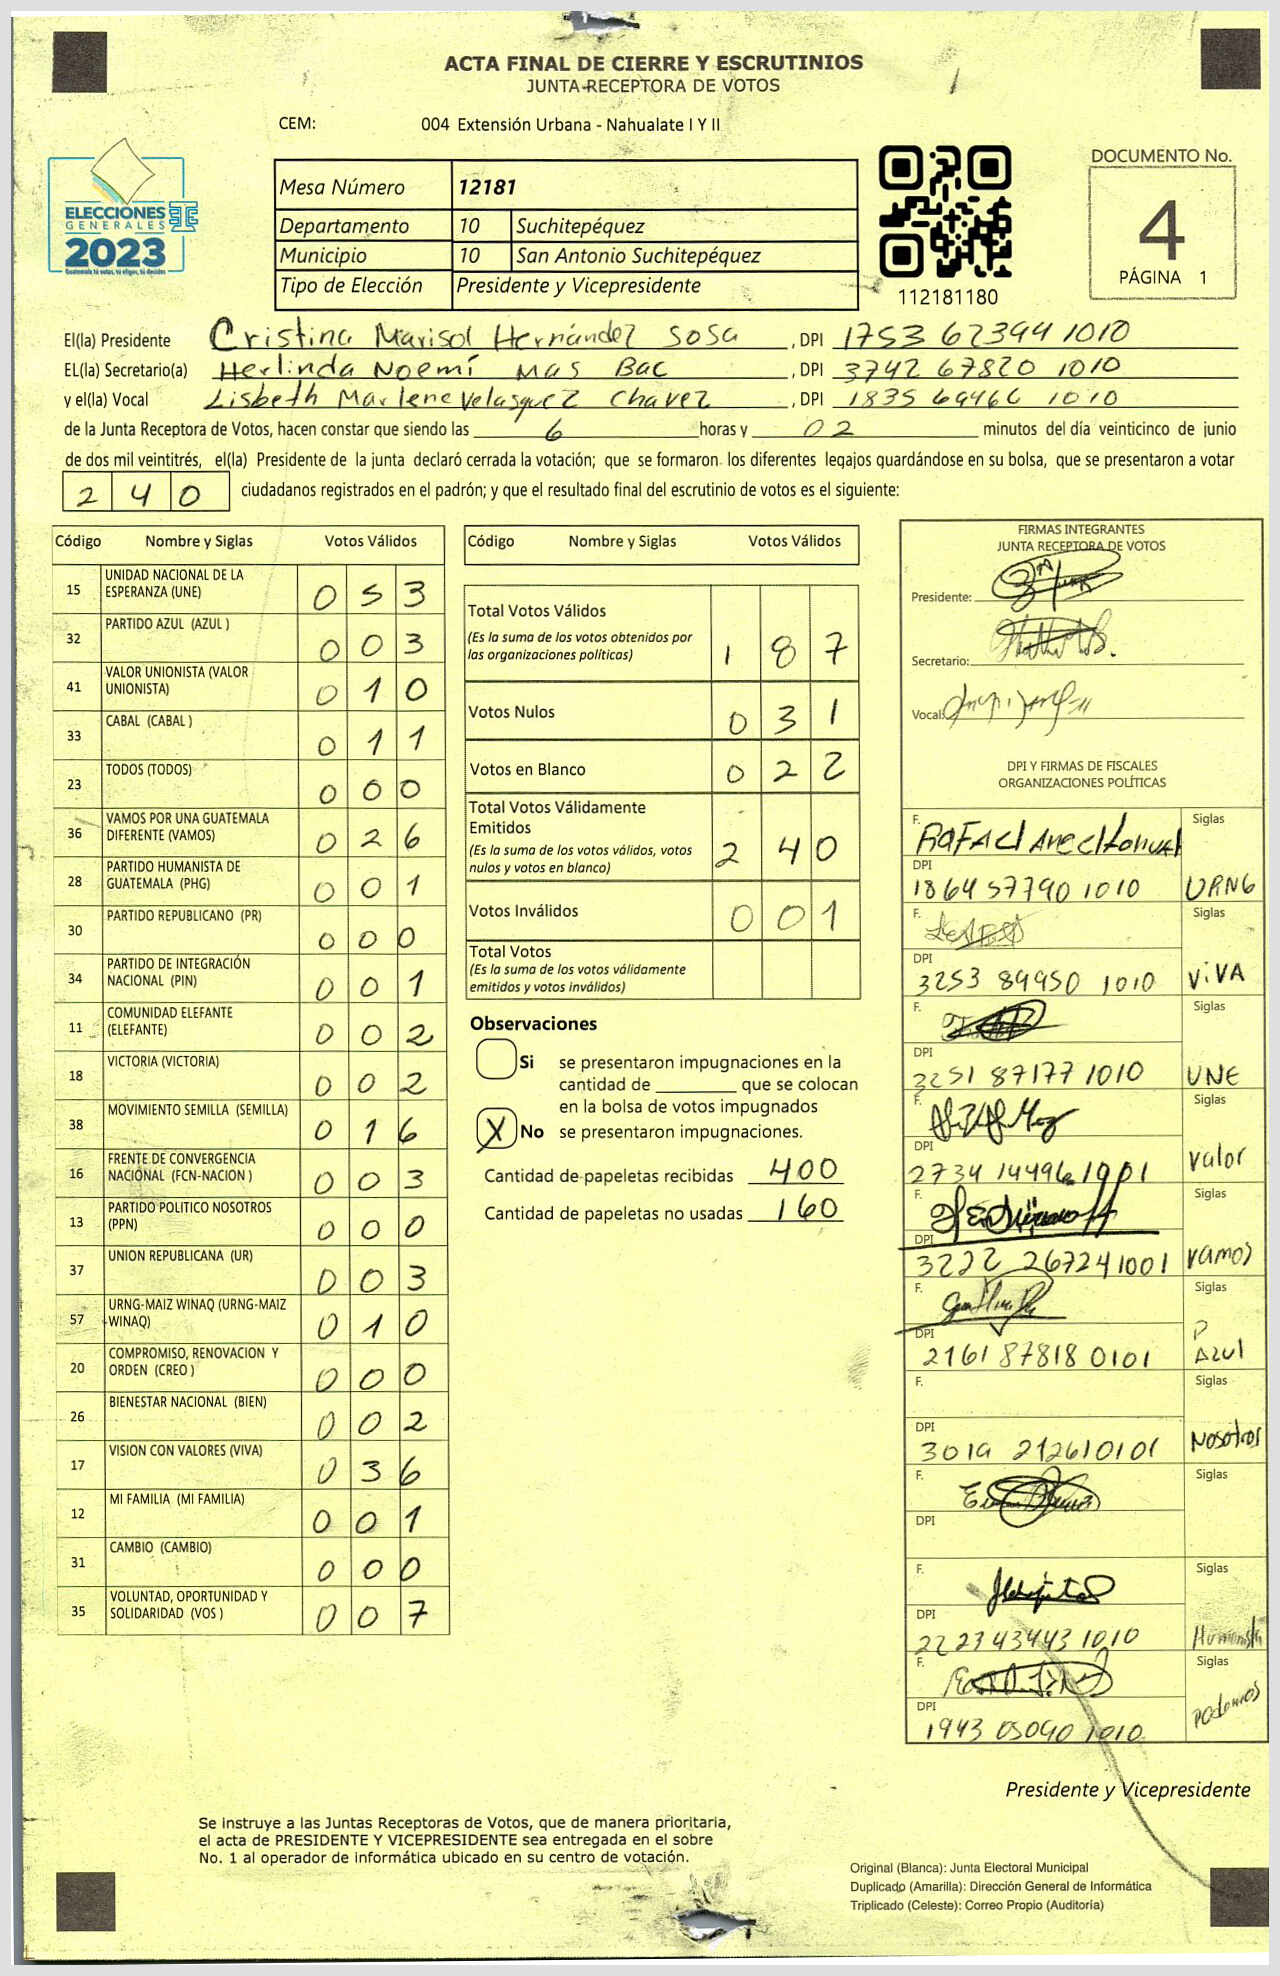 ACTA FINAL DE CIERRE Y ESCRUTINIOS
JUNTA RECEPTORA DE VOTOS
CEM: 004 Extensión Urbana - Nahualate I Y II
ELECCIONES
GENERALES
2023
Guatemala tú votas, tú eliges, tú decides
Mesa Número 12181
Departamento 10 Suchitepéquez
Municipio 10 San Antonio Suchitepéquez
Tipo de Elección Presidente y Vicepresidente
112181180
DOCUMENTO No.
4
PÁGINA 1
El(la) Presidente Cristina Marisol Hernández Sosa , DPI 1753 62394 1010
EL(la) Secretario(a) Herlinda Noemí Mas Bac , DPI 3742 67820 1010
y el(la) Vocal Lisbeth Marlene Velasquez Chavez , DPI 1835 69466 1010
de la Junta Receptora de Votos, hacen constar que siendo las 6 horas y 02 minutos del día veinticinco de junio
de dos mil veintitrés, el(la) Presidente de la junta declaró cerrada la votación; que se formaron los diferentes legajos guardándose en su bolsa, que se presentaron a votar
240 ciudadanos registrados en el padrón; y que el resultado final del escrutinio de votos es el siguiente:
Código Nombre y Siglas Votos Válidos
15 UNIDAD NACIONAL DE LA ESPERANZA (UNE) 053
32 PARTIDO AZUL (AZUL ) 003
41 VALOR UNIONISTA (VALOR UNIONISTA) 010
33 CABAL (CABAL ) 011
23 TODOS (TODOS) 000
36 VAMOS POR UNA GUATEMALA DIFERENTE (VAMOS) 026
28 PARTIDO HUMANISTA DE GUATEMALA (PHG) 001
30 PARTIDO REPUBLICANO (PR) 000
34 PARTIDO DE INTEGRACIÓN NACIONAL (PIN) 001
11 COMUNIDAD ELEFANTE (ELEFANTE) 002
18 VICTORIA (VICTORIA) 002
38 MOVIMIENTO SEMILLA (SEMILLA) 016
16 FRENTE DE CONVERGENCIA NACIONAL (FCN-NACION ) 003
13 PARTIDO POLITICO NOSOTROS (PPN) 000
37 UNION REPUBLICANA (UR) 003
57 URNG-MAIZ WINAQ (URNG-MAIZ WINAQ) 010
20 COMPROMISO, RENOVACION Y ORDEN (CREO ) 000
26 BIENESTAR NACIONAL (BIEN) 002
17 VISION CON VALORES (VIVA) 036
12 MI FAMILIA (MI FAMILIA) 001
31 CAMBIO (CAMBIO) 000
35 VOLUNTAD, OPORTUNIDAD Y SOLIDARIDAD (VOS ) 007
Código Nombre y Siglas Votos Válidos
Total Votos Válidos 187
(Es la suma de los votos obtenidos por
las organizaciones políticas)
Votos Nulos 031
Votos en Blanco 022
Total Votos Válidamente
Emitidos 240
(Es la suma de los votos válidos, votos
nulos y votos en blanco)
Votos Inválidos 001
Total Votos
(Es la suma de los votos válidamente
emitidos y votos inválidos)
Observaciones
Si se presentaron impugnaciones en la
cantidad de ________ que se colocan
en la bolsa de votos impugnados
X No se presentaron impugnaciones.
Cantidad de papeletas recibidas 400
Cantidad de papeletas no usadas 160
FIRMAS INTEGRANTES
JUNTA RECEPTORA DE VOTOS
Presidente:
Secretario:
Vocal:
DPI Y FIRMAS DE FISCALES
ORGANIZACIONES POLÍTICAS
F. Siglas
DPI
1864 57790 1010 URNG
F. Siglas
DPI
3253 89950 1010 ViVA
F. Siglas
DPI
3251 87177 1010 UNE
F. Siglas
DPI
2734 14496 1001 Valor
F. Siglas
DPI
3222 26724 1001 Vamos
F. Siglas
DPI
2161 87818 0101 P Azul
F. Siglas
DPI
3019 21261 0101 Nosotros
F. Siglas
DPI
F. Siglas
DPI
2223 43443 1010 Humanista
F. Siglas
DPI
1943 05090 1010 Podemos
Presidente y Vicepresidente
Se instruye a las Juntas Receptoras de Votos, que de manera prioritaria,
el acta de PRESIDENTE Y VICEPRESIDENTE sea entregada en el sobre
No. 1 al operador de informática ubicado en su centro de votación.
Original (Blanca): Junta Electoral Municipal
Duplicado (Amarilla): Dirección General de Informática
Triplicado (Celeste): Correo Propio (Auditoría)